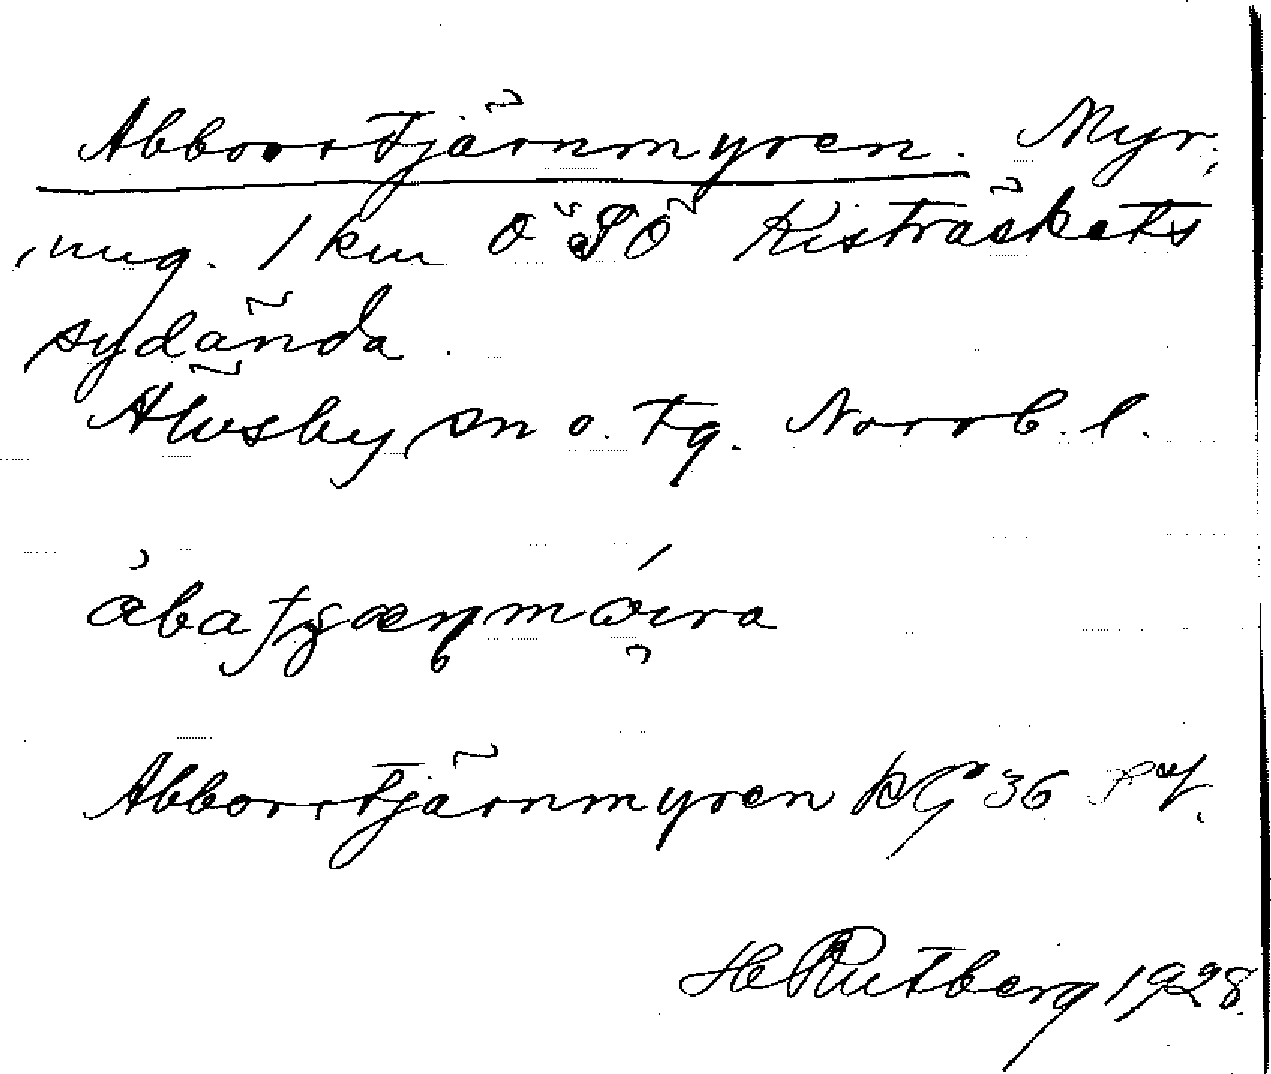 Abborrtjärnmyren. Myr,
inäg. 1 km Ö SÖ Kisträskets
sydända.
Älvsby sn o. tg. Norrb. l.
Abborrtjärnmyren kG 36
H Rutberg 1928.